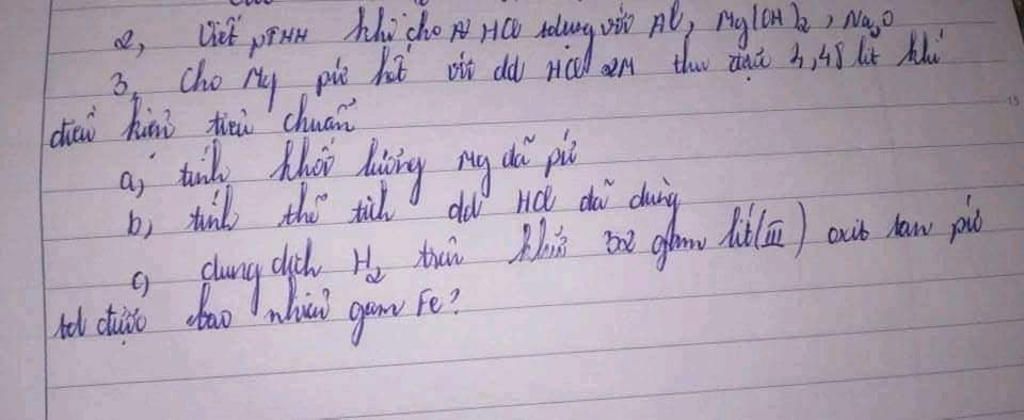 2, Viết PTHH khi cho HCl tdung với Al, Mg(OH)2, Na2O
3, Cho Mg pứ hết với dd HCl 2M thu được 4,48 lit khí
điều kiện tiêu chuẩn
a, tính khối lượng Mg đã pứ
b, tính thể tích dd HCl đã dùng
c, dung dịch H2 trên khử 32 gam (III) oxit sau pứ
được bao nhiêu gam Fe?